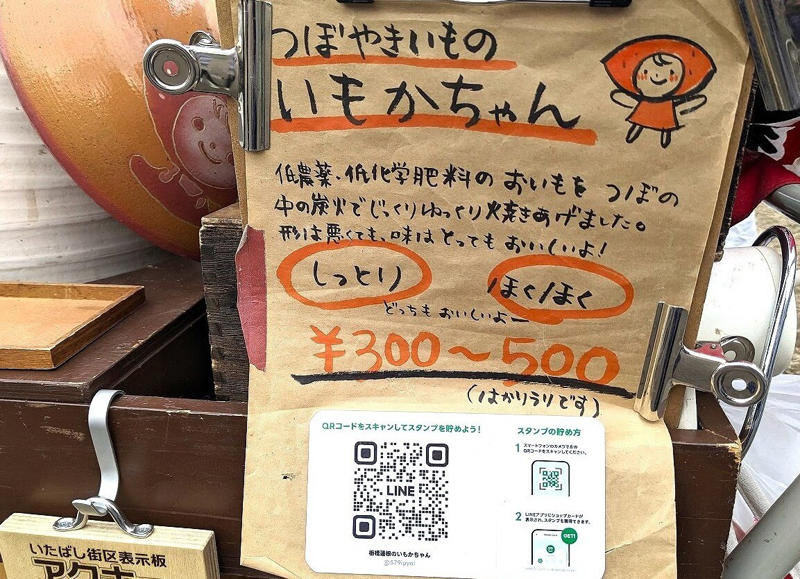 つぼやきいもの
いもかちゃん
低農薬、低化学肥料のおいもをつぼの
中の炭火でじっくりゆっくり火焼きあげました。
形は悪くても、味はとってもおいしいよ!
しっとり
ほくほく
どっちもおいしいよー
¥300〜500
(はかりうりです)
QRコードをスキャンしてスタンプを貯めよう!
LINE
板橋蓮根のいもかちゃん
スタンプの貯め方
1 スマートフォンのカメラで左の
QRコードをスキャンしてください。
2 LINEアプリにショップカードが
表示され、スタンプを獲得できます。
GET!
いたばし街区表示板